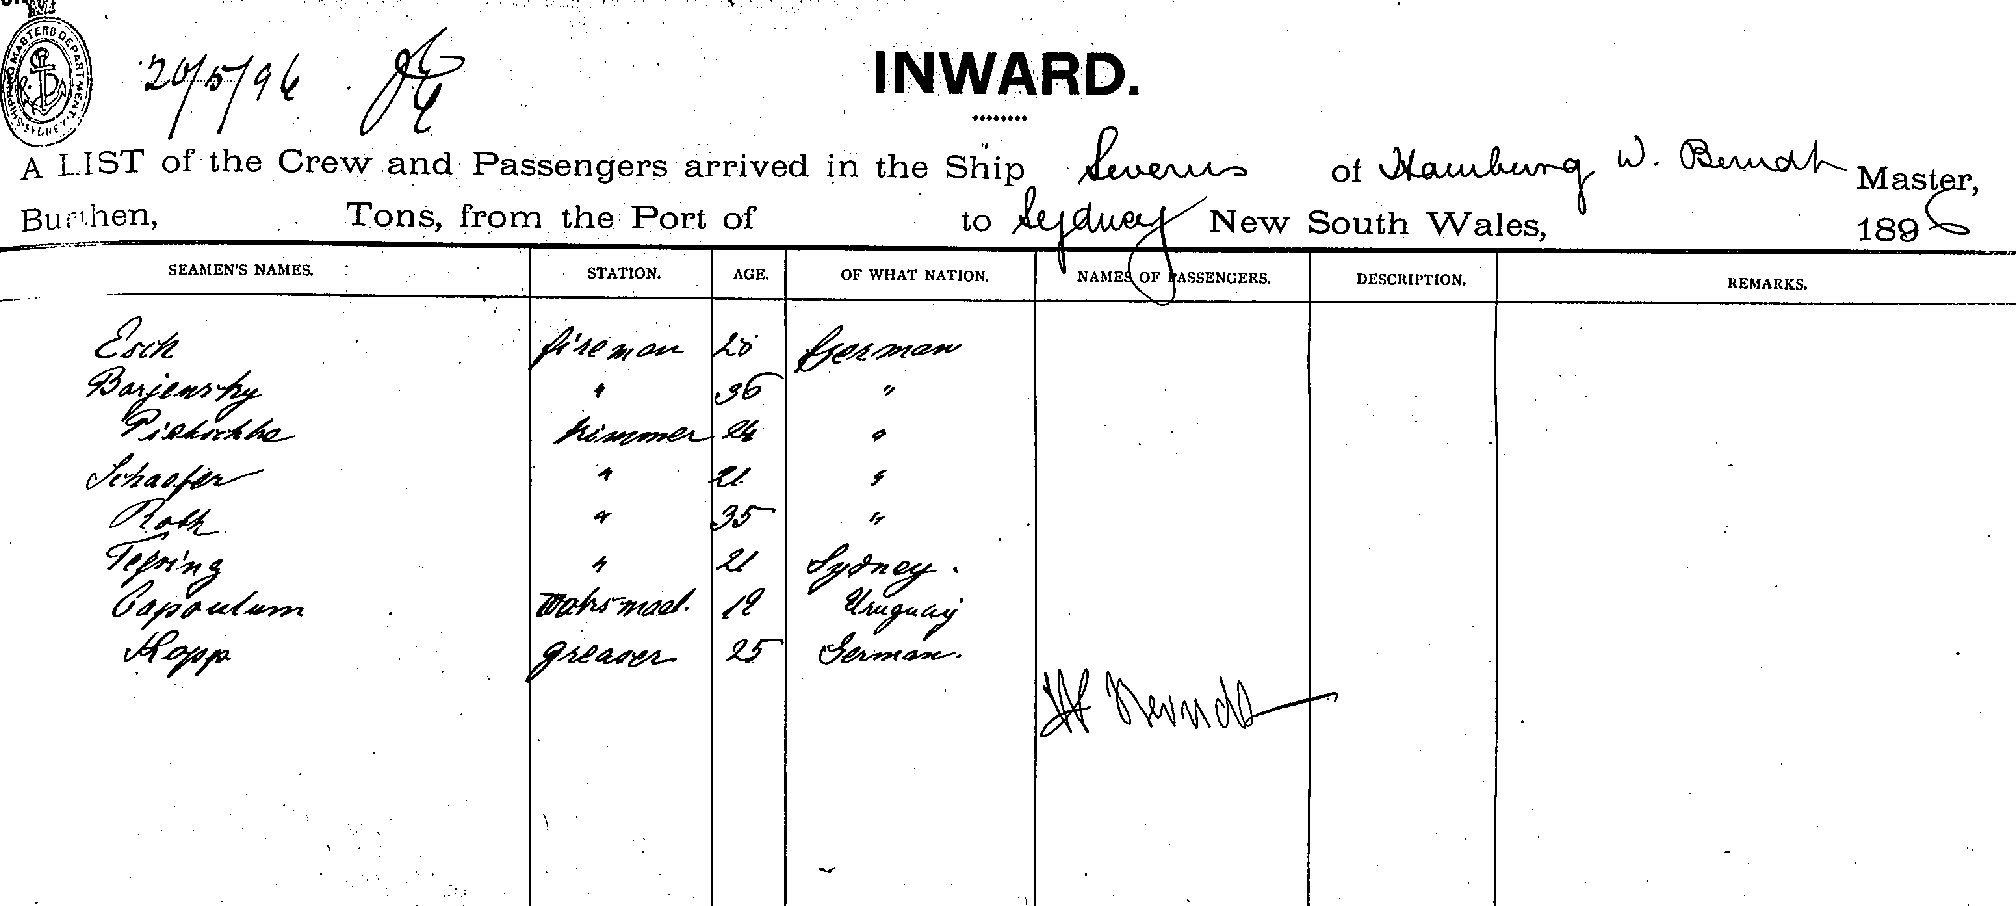 SHIPPING MASTERS DEPARTMENT SYDNEY
20/5/96
INWARD.
A LIST of the Crew and Passengers arrived in the Ship Severus of Hamburg W. Berndt Master,
Burthen, Tons, from the Port of to Sydney New South Wales, 1896
SEAMEN'S NAMES. STATION. AGE. OF WHAT NATION. NAMES OF PASSENGERS. DESCRIPTION. REMARKS.
Esch fireman German
" 36 "
trimmer 24 "
Schaefer " 21 "
Roth " 35 "
" 21 Sydney.
19 Uruguay
Kopp greaser 25 German.
W Berndt